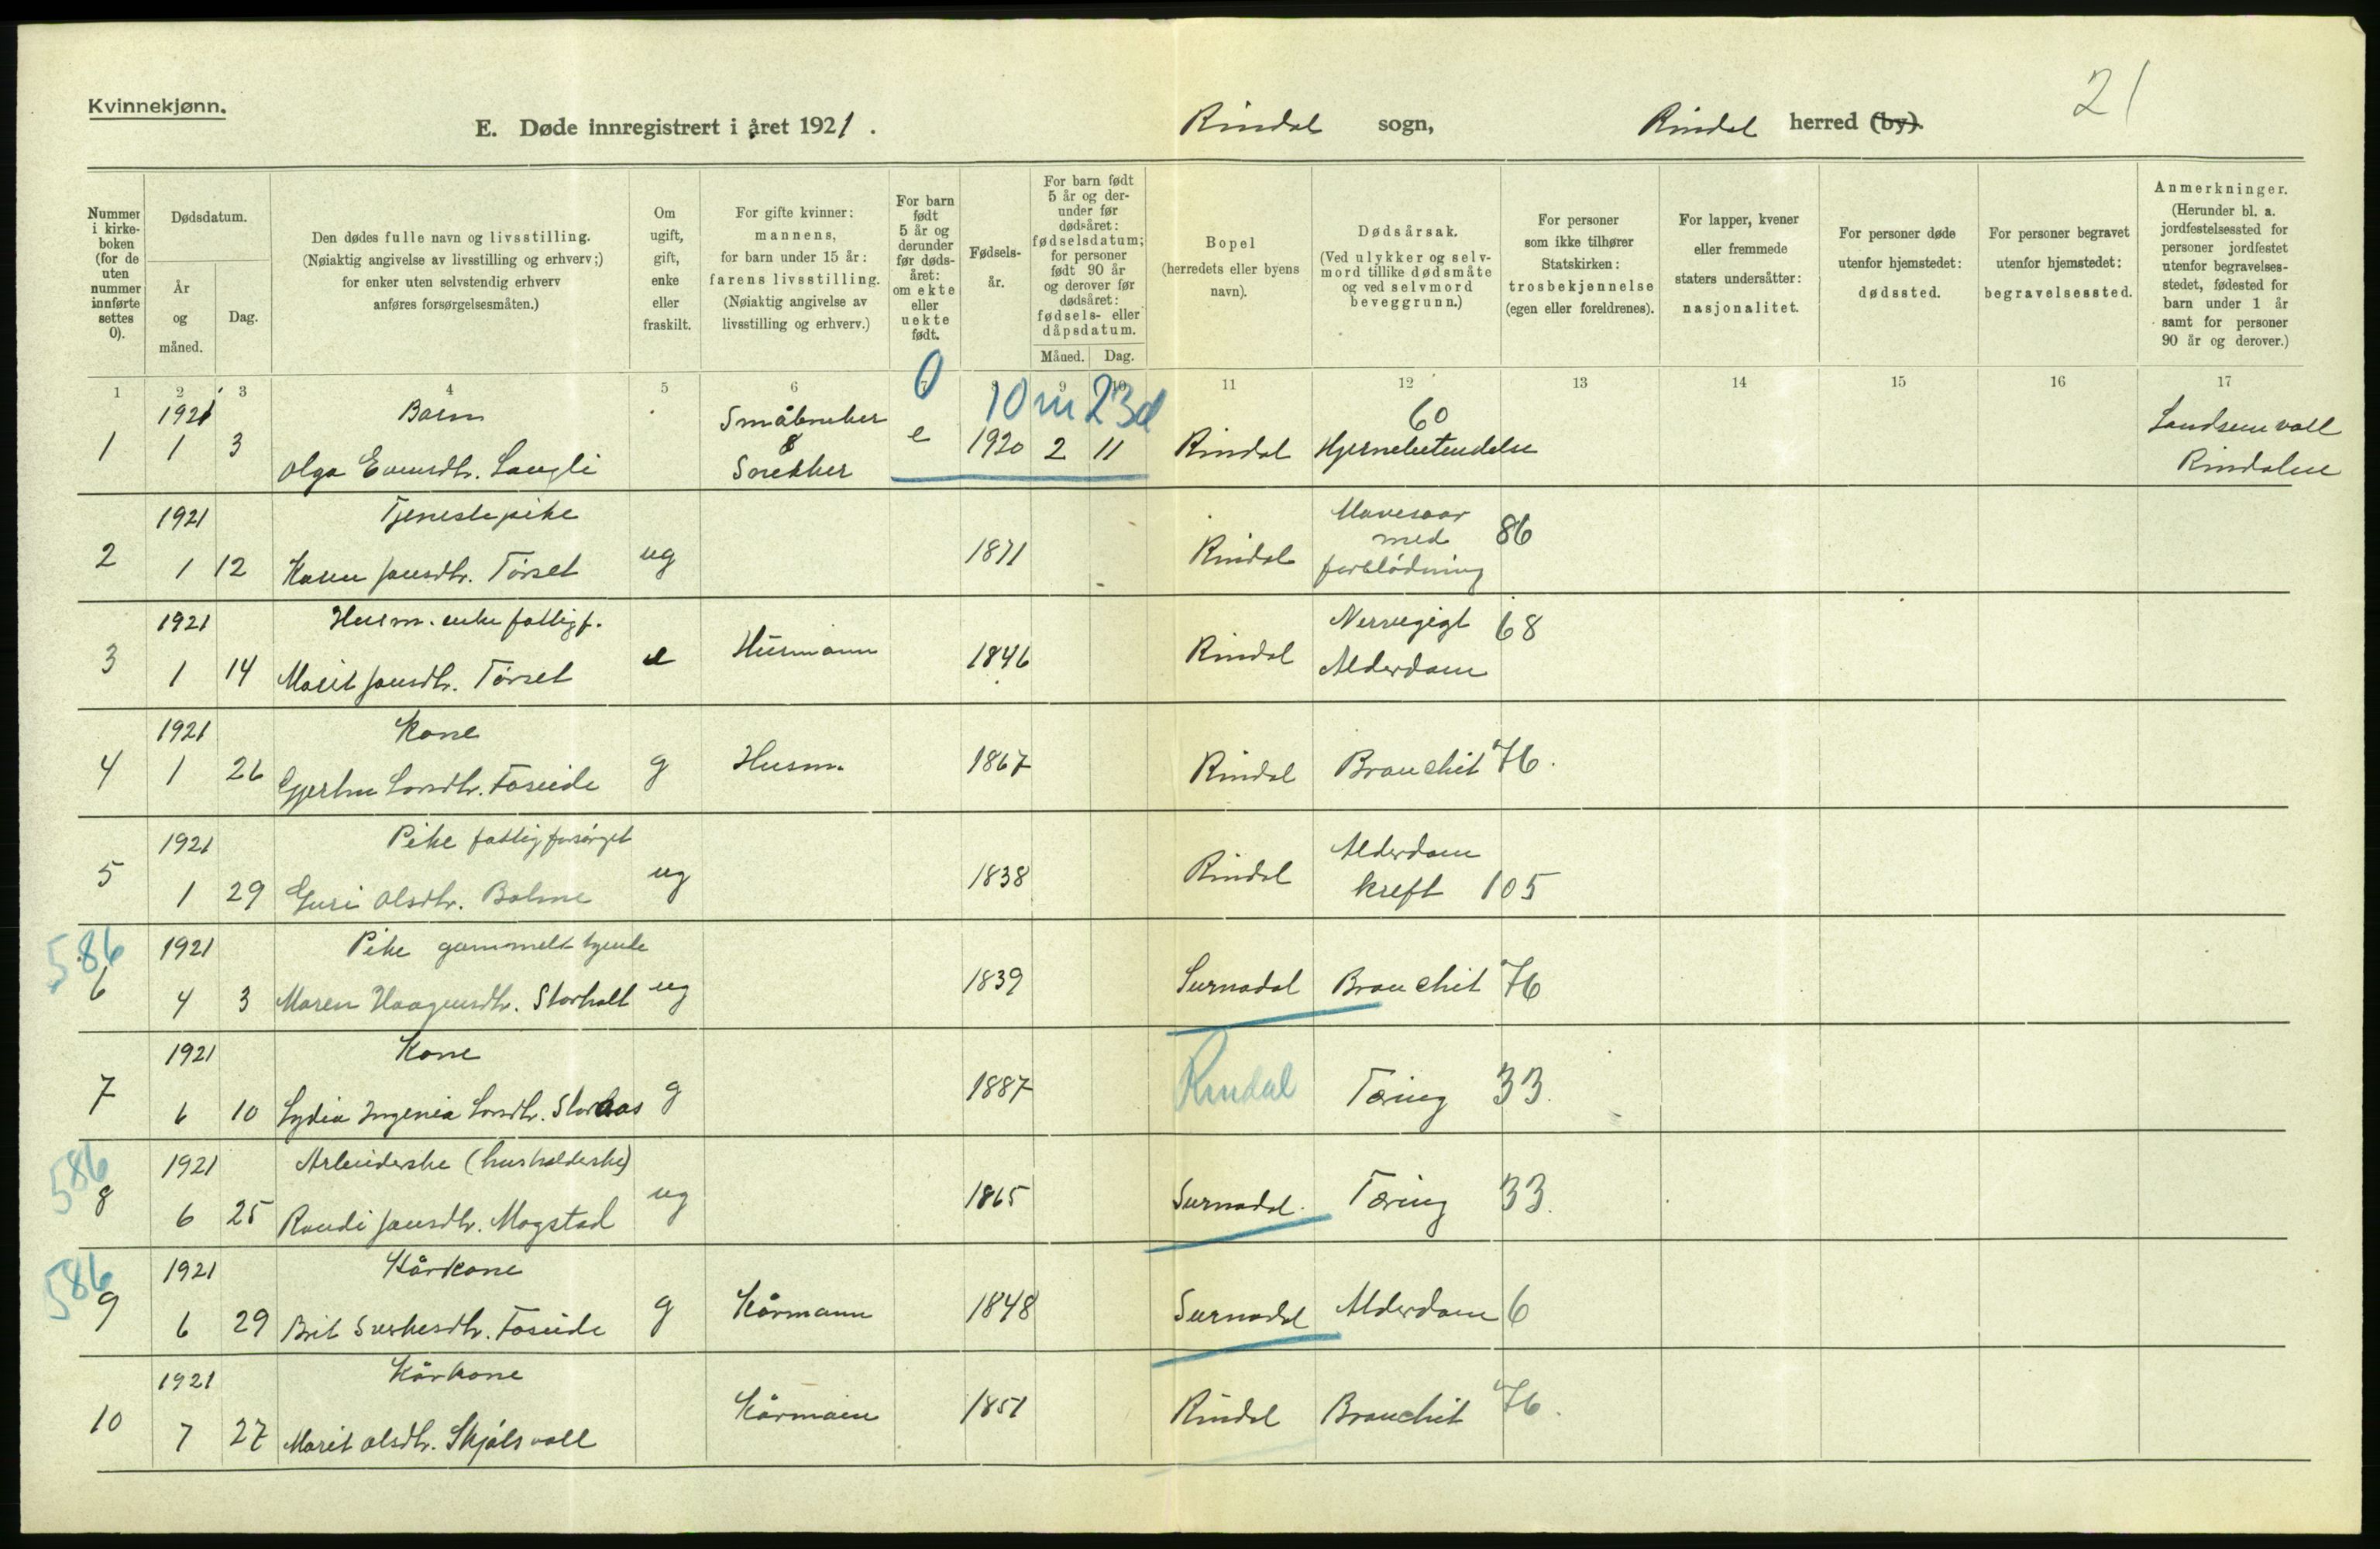 Kvinnekjønn.
21
E. Døde innregistrert i året 1921. Rindal sogn, Rindal herred (by).
Nummer i kirkeboken (for de uten nummer innførte settes 0).
Dødsdatum.
År og måned.
Dag.
Den dødes fulle navn og livsstilling.
(Nøiaktig angivelse av livsstilling og erhverv;)
for enker uten selvstendig erhverv
anføres forsørgelsesmåten.)
Om ugift, gift, enke eller fraskilt.
For gifte kvinner:
mannens,
for barn under 15 år:
farens livsstilling.
(Nøiaktig angivelse av
livsstilling og erhverv.)
For barn født 5 år og derunder før dødsåret: om ekte eller uekte født.
Fødselsår.
For barn født 5 år og derunder før dødsåret: fødselsdatum; for personer født 90 år og derover før dødsåret: fødsels- eller dåpsdatum.
Måned. Dag.
Bopel
(herredets eller byens
navn).
Dødsårsak.
(Ved ulykker og selvmord tillike dødsmåte og ved selvmord beveggrunn.)
For personer
som ikke tilhører
Statskirken:
trosbekjennelse
(egen eller foreldrenes).
For lapper, kvener
eller fremmede
staters undersåtter:
nasjonalitet.
For personer døde
utenfor hjemstedet:
dødssted.
For personer begravet
utenfor hjemstedet:
begravelsessted.
Anmerkninger.
(Herunder bl. a.
jordfestelsessted for
personer jordfestet
utenfor begravelsesstedet, fødested for
barn under 1 år
samt for personer
90 år og derover.)
1 2 3 4 5 6 7 8 9 10 11 12 13 14 15 16 17
0 10 m 23 d
1921 Barn Småbruker 60 Landsemvall
1 1 3 Olga Evensdtr. Langli & Snekker e 1920 2 11 Rindal Hjernebetendelse Rindalen
1921 Tjenestepike Mavesaar
2 1 12 Karen Jonsdtr. Tørset ug 1871 Rindal med 86
forblødning
1921 Husm. enke fattigf. Nervegigt 68
3 1 14 Marit Jonsdtr. Tørset e Husmann 1846 Rindal Alderdom
1921 Kone
4 1 26 Gjertru Larsdtr. Foseide g Husm. 1867 Rindal Bronchit 76.
1921 Pike fattigforsørget Alderdom
5 1 29 Guri Olsdtr. Bolme ug 1838 Rindal kreft 105
586 1921 Pike gammelt tyende
6 4 3 Maren Haagensdtr. Storholt ug 1839 Surnadal Bronchit 76
1921 Kone
7 6 10 Lydia Ingenia Larsdtr. Storaas g 1887 Rindal Tæring 33.
586 1921 Arbeiderske (husholderske)
8 6 25 Randi Jonsdtr. Mogstad ug 1865 Surnadal. Tæring 33.
586 1921 Kårkone
9 6 29 Brit Sverkesdtr. Foseide g Kårmann 1848 Surnadal Alderdom 6
1921 Kårkone
10 7 27 Marit Olsdtr. Skjølsvoll Kårmann 1851 Rindal Bronchit 76.